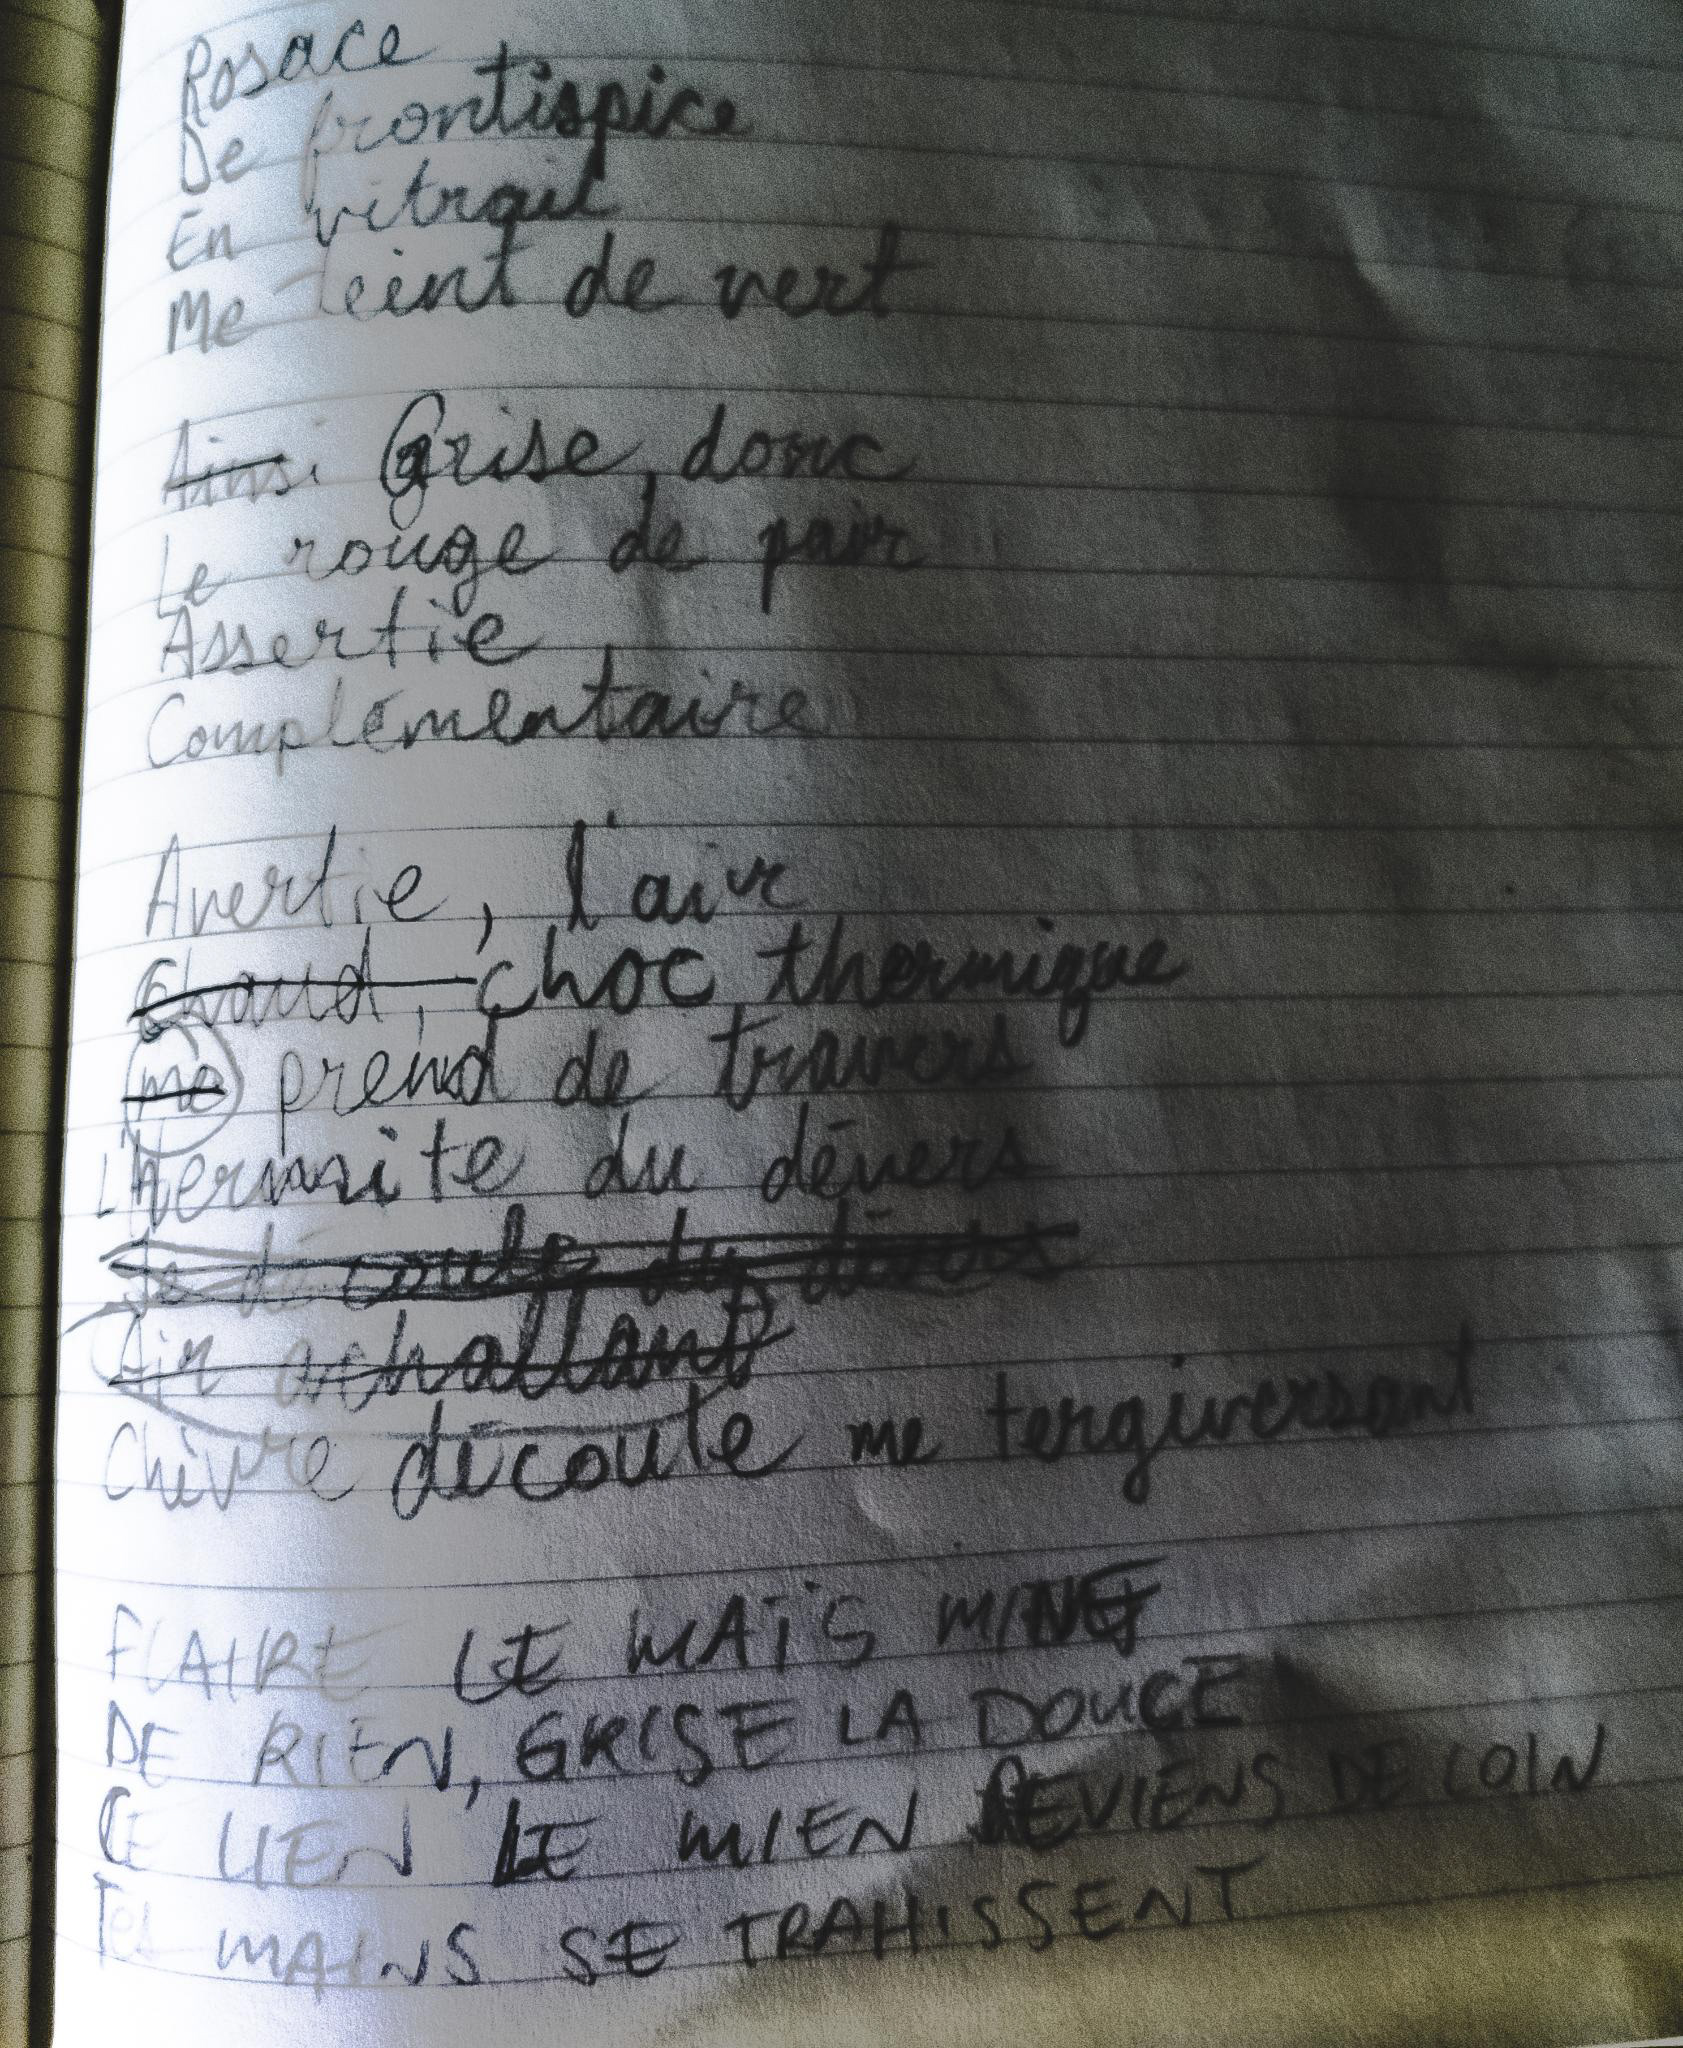 Rosace
De frontispice
En vitrail
Me teint de vert
Ainsi Grise, donc
Le rouge de pair
Assertie
Complémentaire
Avertie, l'air
Chaud, choc thermique
me prend de travers
L'hermite du dévers
Air achallant
Chèvre découte me tergiversant
FLAIRE LE MAÏS MINE
DE RIEN, GRISE LA DOUCE
CE LIEN LE MIEN REVIENS DE LOIN
Tes MAINS SE TRAHISSENT